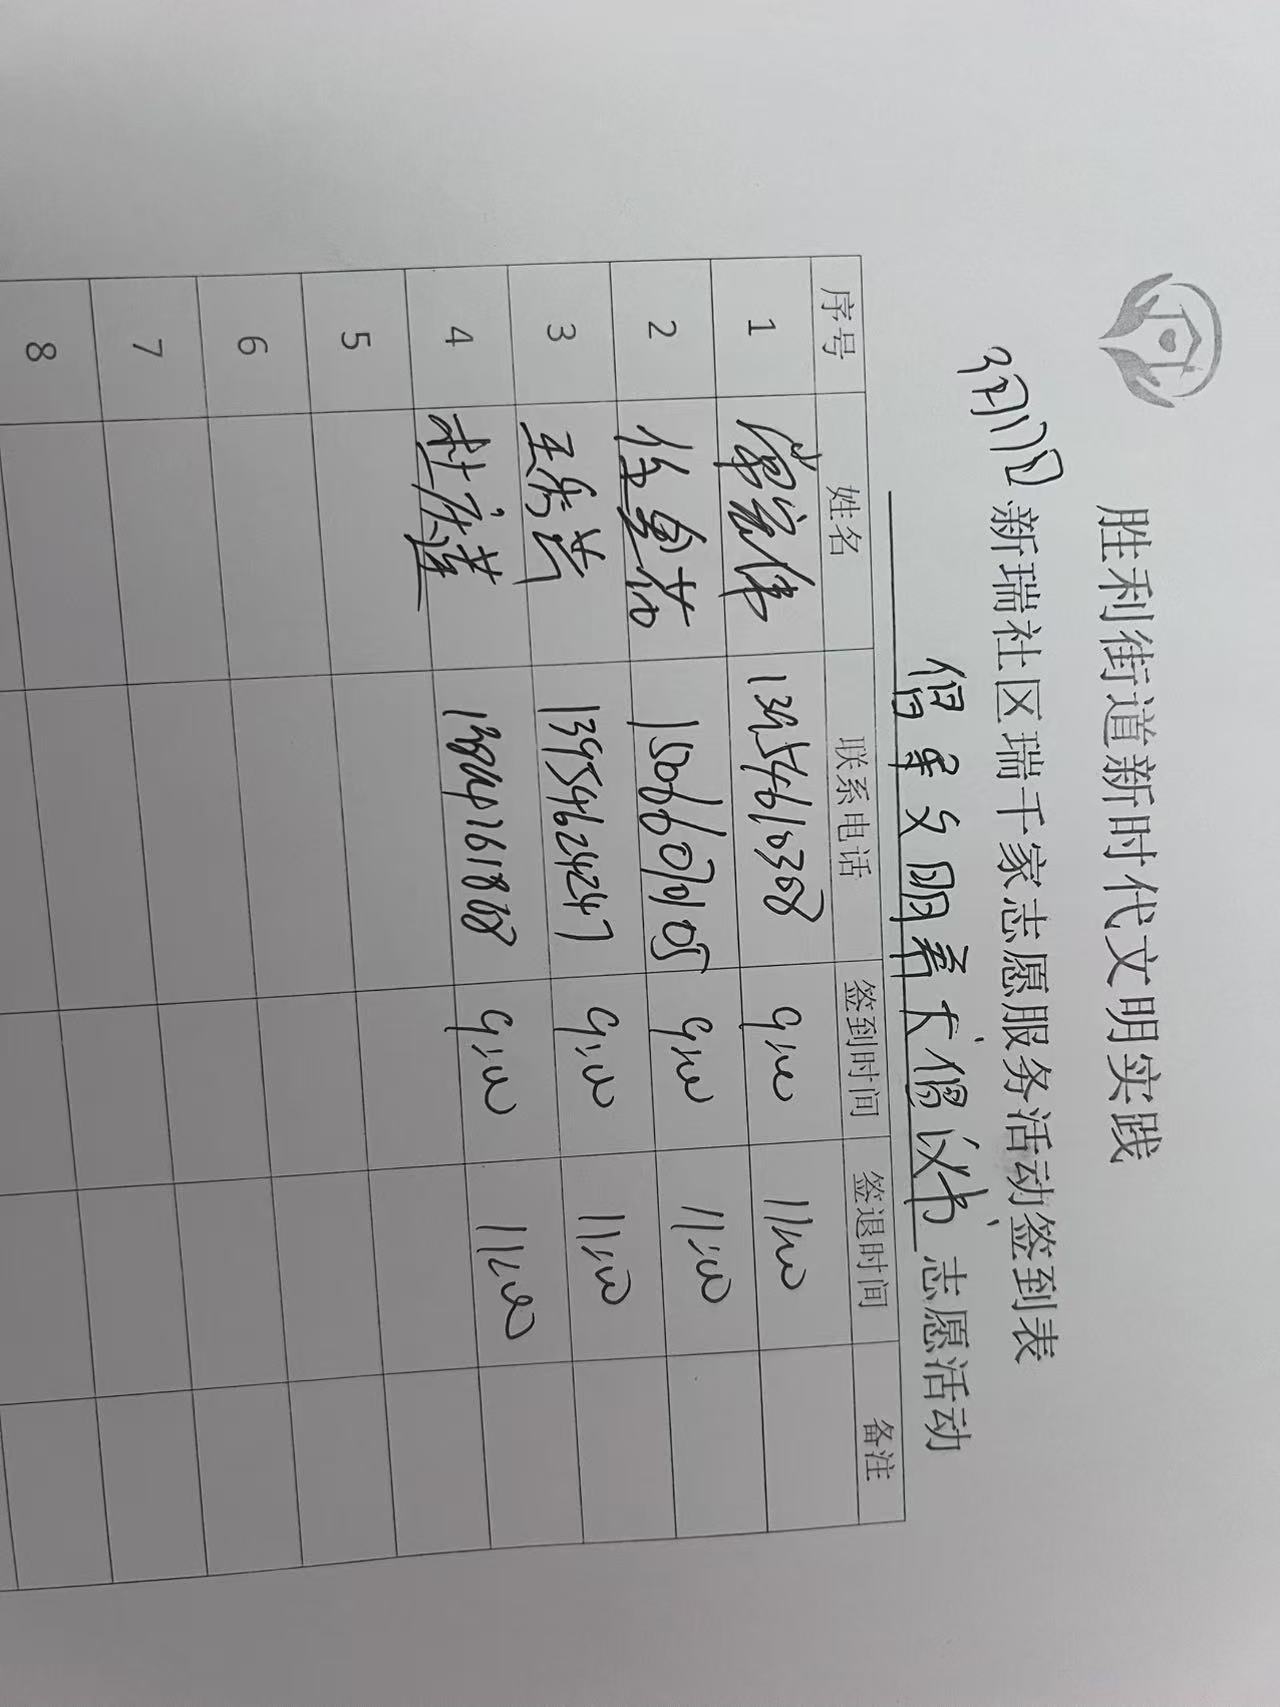 胜利街道新时代文明实践
3月17日 新瑞社区瑞千家志愿服务活动签到表
倡导文明养犬倡议书 志愿活动
序号 姓名 联系电话 签到时间 签退时间 备注
1 13954610368 9:00 11:00
2 15066070105 9:00 11:00
3 王秀芳 13954624247 9:00 11:00
4 杜庆莲 9:00 11:00
5
6
7
8